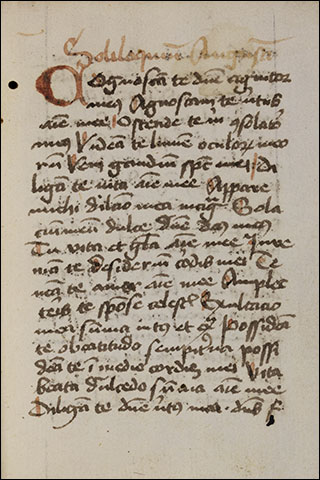 Soliloquium Augustini
Cognoscam te dne cognitor
meus Agnoscam te virtus
aie mee Ostende te mi ɔsolator
meus Videam te lumen oculor meo
Veni gaudium spc mei Di
ligam te vita aie mee Appare
michi dilcio mea magna Sola
cium meum dulce dne ds meus
Tu vita et gla aie mee Inve
niam te desiderium cordis mei Te
neam te amor aie mee Amplec
teris te sponse celestis Exultacio
mea summa intus et ex Possideam
te beatitudo sempiterna possi
deam te i medio cordis mei Vita
beata dulcedo summa aie mee
Diligam te dne virtus mea dns